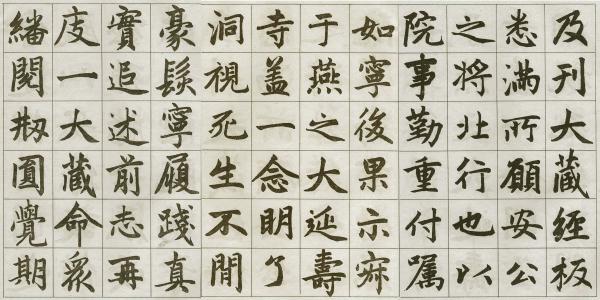 及刊大藏經板
悉滿所願安公
之將北行也以
院事勤重付囑
如寧後果示寂
于燕之大延壽
寺盖一念明了
洞視死生不間
豪髮寧履踐真
實追述前志再
度一大藏命眾
繙閱刱圓覺期